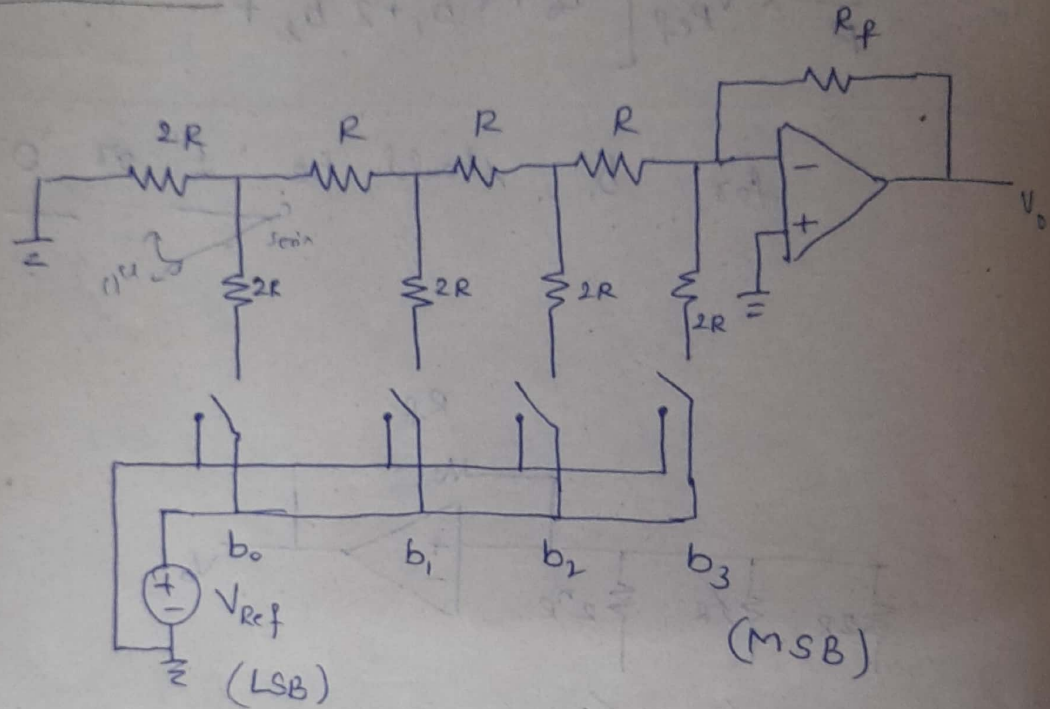 Rf
2R R R R
- +
V0
2R 2R 2R 2R
b0 b1 b2 b3
+ - VRef
(MSB)
(LSB)